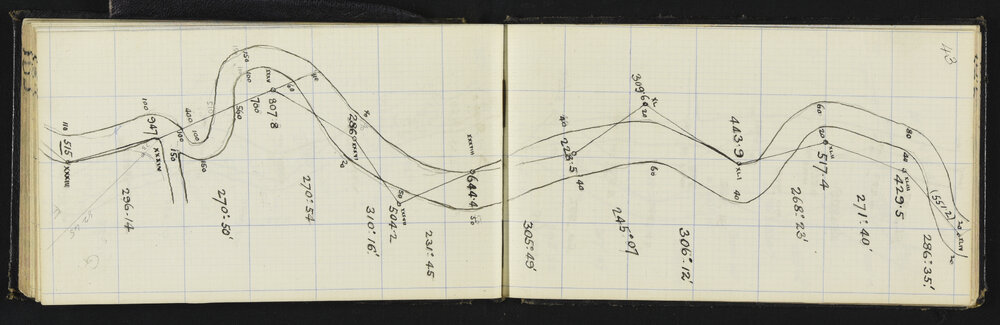 43
110
515
XXXIII
296.14
100
947
XXXIV
100
150
400
100
150
270°.50'
150
100
560
700
XXXV
807.8
60
270°.54
286
XXXVI
20
310°.16'
50
504.2
231°.45
XXXVIII
644.4
50
305°.49'
40
228.5
40
245°.07
309
60
XL
20
60
306°.12'
443.9
XLI
40
268°.23'
60
20
XLII
517.4
271°.40'
80
40
XLIII
429.5
(551.2)
20
XLIV
20
286°.35'